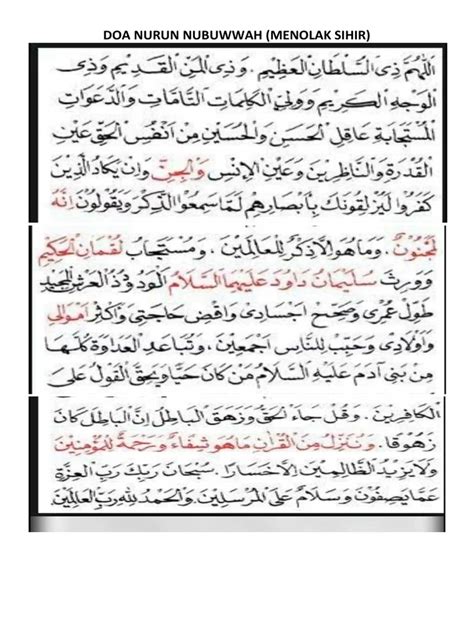 DOA NURUN NUBUWWAH (MENOLAK SIHIR)
اَللّٰهُمَّ ذِى السُّلْطَانِ الْعَظِيْمِ . وَذِى الْمَنِّ الْقَدِيْمِ وَذِى
الْوَجْهِ الْكَرِيْمِ وَوَلِيِّ الْكَلِمَاتِ التَّامَّاتِ وَالدَّعَوَاتِ
الْمُسْتَجَابَةِ عَاقِلِ الْحَسَنِ وَالْحُسَيْنِ مِنْ اَنْفُسِ الْحَقِّ عَيْنِ
الْقُدْرَةِ وَالنَّاظِرِيْنَ وَعَيْنِ الْاِنْسِ وَالْجِنِّ وَاِنْ يَكَادُ الَّذِيْنَ
كَفَرُوْا لَيُزْلِقُوْنَكَ بِاَبْصَارِهِمْ لَمَّا سَمِعُوا الذِّكْرَ وَيَقُوْلُوْنَ اِنَّهُ
لَمَجْنُوْنٌ . وَمَا هُوَ اِلَّا ذِكْرٌ لِلْعَالَمِيْنَ . وَمُسْتَجَابُ لُقْمَانَ الْحَكِيْمِ
وَوَرِثَ سُلَيْمَانُ دَاوُدَ عَلَيْهِمَا السَّلَامُ الْوَدُوْدُ ذُو الْعَرْشِ الْمَجِيْدِ
طَوِّلْ عُمْرِى وَصَحِّحْ اَجْسَادِى وَاقْضِ حَاجَتِى وَاَكْثِرْ اَمْوَالِى
وَاَوْلَادِى وَحَبِّبْ لِلنَّاسِ اَجْمَعِيْنَ . وَتَبَاعَدِ الْعَدَاوَةَ كُلَّهَا
مِنْ بَنِى آدَمَ عَلَيْهِ السَّلَامُ مَنْ كَانَ حَيًّا وَيَحِقَّ الْقَوْلُ عَلَى
الْكَافِرِيْنَ . وَقُلْ جَاءَ الْحَقُّ وَزَهَقَ الْبَاطِلُ اِنَّ الْبَاطِلَ كَانَ
زَهُوْقًا . وَنُنَزِّلُ مِنَ الْقُرْآنِ مَا هُوَ شِفَاءٌ وَرَحْمَةٌ لِلْمُؤْمِنِيْنَ
وَلَا يَزِيْدُ الظَّالِمِيْنَ اِلَّا خَسَارًا . سُبْحَانَ رَبِّكَ رَبِّ الْعِزَّةِ
عَمَّا يَصِفُوْنَ وَسَلَامٌ عَلَى الْمُرْسَلِيْنَ . وَالْحَمْدُ لِلّٰهِ رَبِّ الْعَالَمِيْنَ